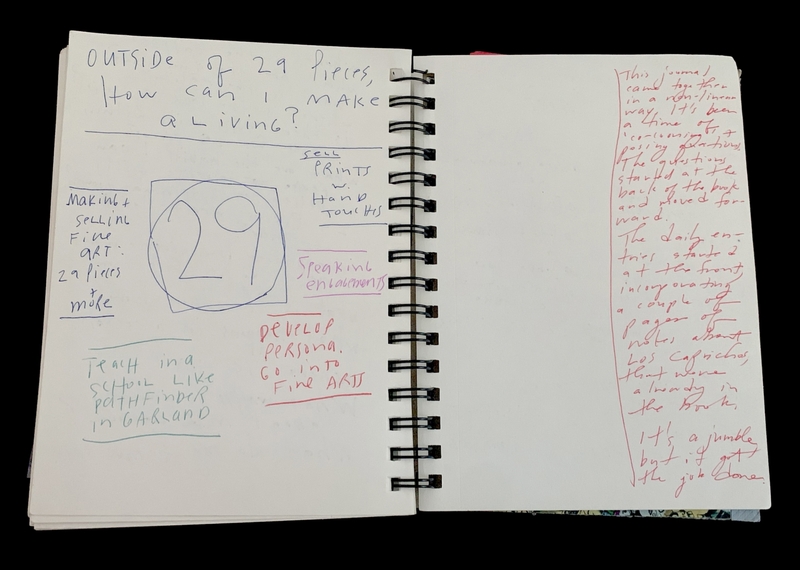 OUTSIDE of 29 Pieces,
How can I MAKE
a LIVING?
sell
PRINTS
w.
HAND
TOUCHES
Making +
selling
Fine
ART:
29 pieces
+
more
29
Speaking
engagements
Develop
Persona.
Go into
Fine ARTS
Teach in a
School Like
Pathfinder
in GARLAND
This journal
came together
in a non-linear
way. It's been
a time of
posing questions
The questions
started at the
back of the book
and moved for-
ward.
The daily en-
tries started
at the front,
incorporating
a couple of
pages of
notes about
Los Caprichos,
that were
already in
the book.
It's a jumble
but it got
the job done.